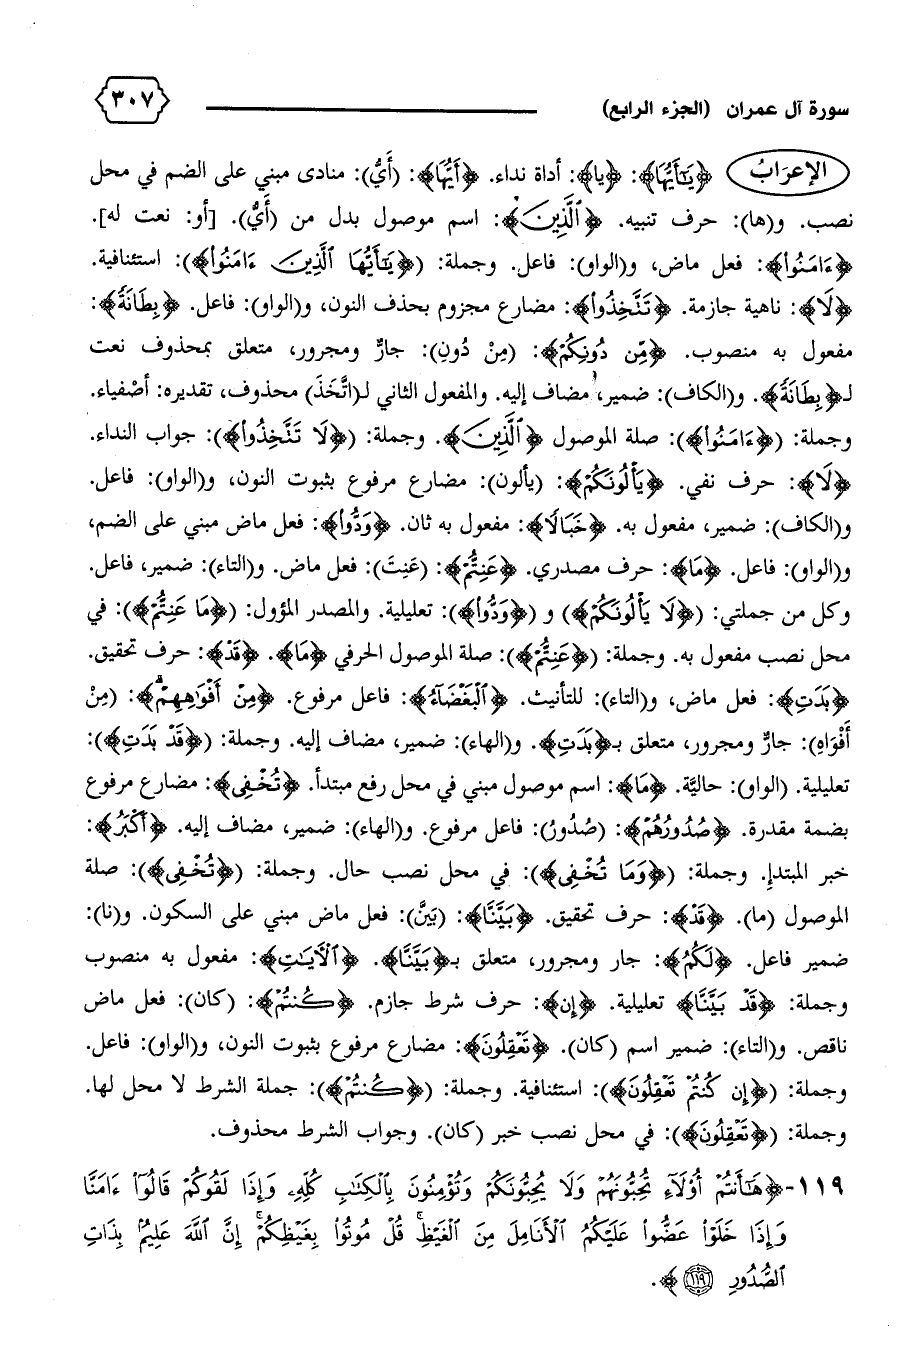 سورة آل عمران (الجزء الرابع) ٣٠٧
الإعرَابُ ﴿يَٰٓأَيُّهَا﴾: ﴿يا﴾: أداة نداء. ﴿أَيُّهَا﴾: (أَيُّ): منادى مبني على الضم في محل
نصب. و(ها): حرف تنبيه. ﴿ٱلَّذِينَ﴾: اسم موصول بدل من (أَيُّ). [أو: نعت له].
﴿ءَامَنُوا۟﴾: فعل ماض، و(الواو): فاعل. وجملة: (﴿يَٰٓأَيُّهَا ٱلَّذِينَ ءَامَنُوا۟﴾): استئنافية.
﴿لَا﴾: ناهية جازمة. ﴿تَتَّخِذُوا۟﴾: مضارع مجزوم بحذف النون، و(الواو): فاعل. ﴿بِطَانَةً﴾:
مفعول به منصوب. ﴿مِّن دُونِكُمْ﴾: (مِنْ دُونِ): جارٌّ ومجرور، متعلق بمحذوف نعت
لـ﴿بِطَانَةً﴾. و(الكاف): ضمير، مضاف إليه. والمفعول الثاني لـ(اتَّخَذَ) محذوف، تقديره: أصْفياء.
وجملة: (﴿ءَامَنُوا۟﴾): صلة الموصول ﴿ٱلَّذِينَ﴾. وجملة: (﴿لَا تَتَّخِذُوا۟﴾): جواب النداء.
﴿لَا﴾: حرف نفي. ﴿يَأْلُونَكُمْ﴾: (يألون): مضارع مرفوع بثبوت النون، و(الواو): فاعل.
و(الكاف): ضمير، مفعول به. ﴿خَبَالًا﴾: مفعول به ثان. ﴿وَدُّوا۟﴾: فعل ماض مبني على الضم،
و(الواو): فاعل. ﴿مَا﴾: حرف مصدري. ﴿عَنِتُّمْ﴾: (عَنِتَ): فعل ماض. و(التاء): ضمير، فاعل.
وكل من جملتي: (﴿لَا يَأْلُونَكُمْ﴾) و (﴿وَدُّوا۟﴾): تعليلية. والمصدر المؤول: (﴿مَا عَنِتُّمْ﴾): في
محل نصب مفعول به. وجملة: (﴿عَنِتُّمْ﴾): صلة الموصول الحرفي ﴿مَا﴾. ﴿قَدْ﴾: حرف تحقيق.
﴿بَدَتِ﴾: فعل ماض، و(التاء): للتأنيث. ﴿ٱلْبَغْضَآءُ﴾: فاعل مرفوع. ﴿مِنْ أَفْوَٰهِهِمْ﴾: (مِنْ
أَفْوَاهِ): جارٌّ ومجرور، متعلق بـ﴿بَدَتِ﴾. و(الهاء): ضمير، مضاف إليه. وجملة: (﴿قَدْ بَدَتِ﴾):
تعليلية. (الواو): حاليَّة. ﴿مَا﴾: اسم موصول مبني في محل رفع مبتدأ. ﴿تُخْفِى﴾: مضارع مرفوع
بضمة مقدرة. ﴿صُدُورُهُمْ﴾: (صُدُورُ): فاعل مرفوع. و(الهاء): ضمير، مضاف إليه. ﴿أَكْبَرُ﴾:
خبر المبتدإ. وجملة: (﴿وَمَا تُخْفِى﴾): في محل نصب حال. وجملة: (﴿تُخْفِى﴾): صلة
الموصول (ما). ﴿قَدْ﴾: حرف تحقيق. ﴿بَيَّنَّا﴾: (بَيَّنَ): فعل ماض مبني على السكون. و(نا):
ضمير فاعل. ﴿لَكُمُ﴾: جار ومجرور، متعلق بـ﴿بَيَّنَّا﴾. ﴿ٱلْـَٔايَٰتِ﴾: مفعول به منصوب
وجملة: ﴿قَدْ بَيَّنَّا﴾ تعليلية. ﴿إِن﴾: حرف شرط جازم. ﴿كُنتُمْ﴾: (كان): فعل ماض
ناقص. و(التاء): ضمير اسم (كان). ﴿تَعْقِلُونَ﴾: مضارع مرفوع بثبوت النون، و(الواو): فاعل.
وجملة: (﴿إِن كُنتُمْ تَعْقِلُونَ﴾): استئنافية. وجملة: (﴿كُنتُمْ﴾): جملة الشرط لا محل لها.
وجملة: (﴿تَعْقِلُونَ﴾): في محل نصب خبر (كان). وجواب الشرط محذوف.
١١٩-﴿هَٰٓأَنتُمْ أُو۟لَآءِ تُحِبُّونَهُمْ وَلَا يُحِبُّونَكُمْ وَتُؤْمِنُونَ بِٱلْكِتَٰبِ كُلِّهِۦ وَإِذَا لَقُوكُمْ قَالُوٓا۟ ءَامَنَّا
وَإِذَا خَلَوْا۟ عَضُّوا۟ عَلَيْكُمُ ٱلْأَنَامِلَ مِنَ ٱلْغَيْظِ ۚ قُلْ مُوتُوا۟ بِغَيْظِكُمْ ۗ إِنَّ ٱللَّهَ عَلِيمٌۢ بِذَاتِ
ٱلصُّدُورِ ١١٩﴾.